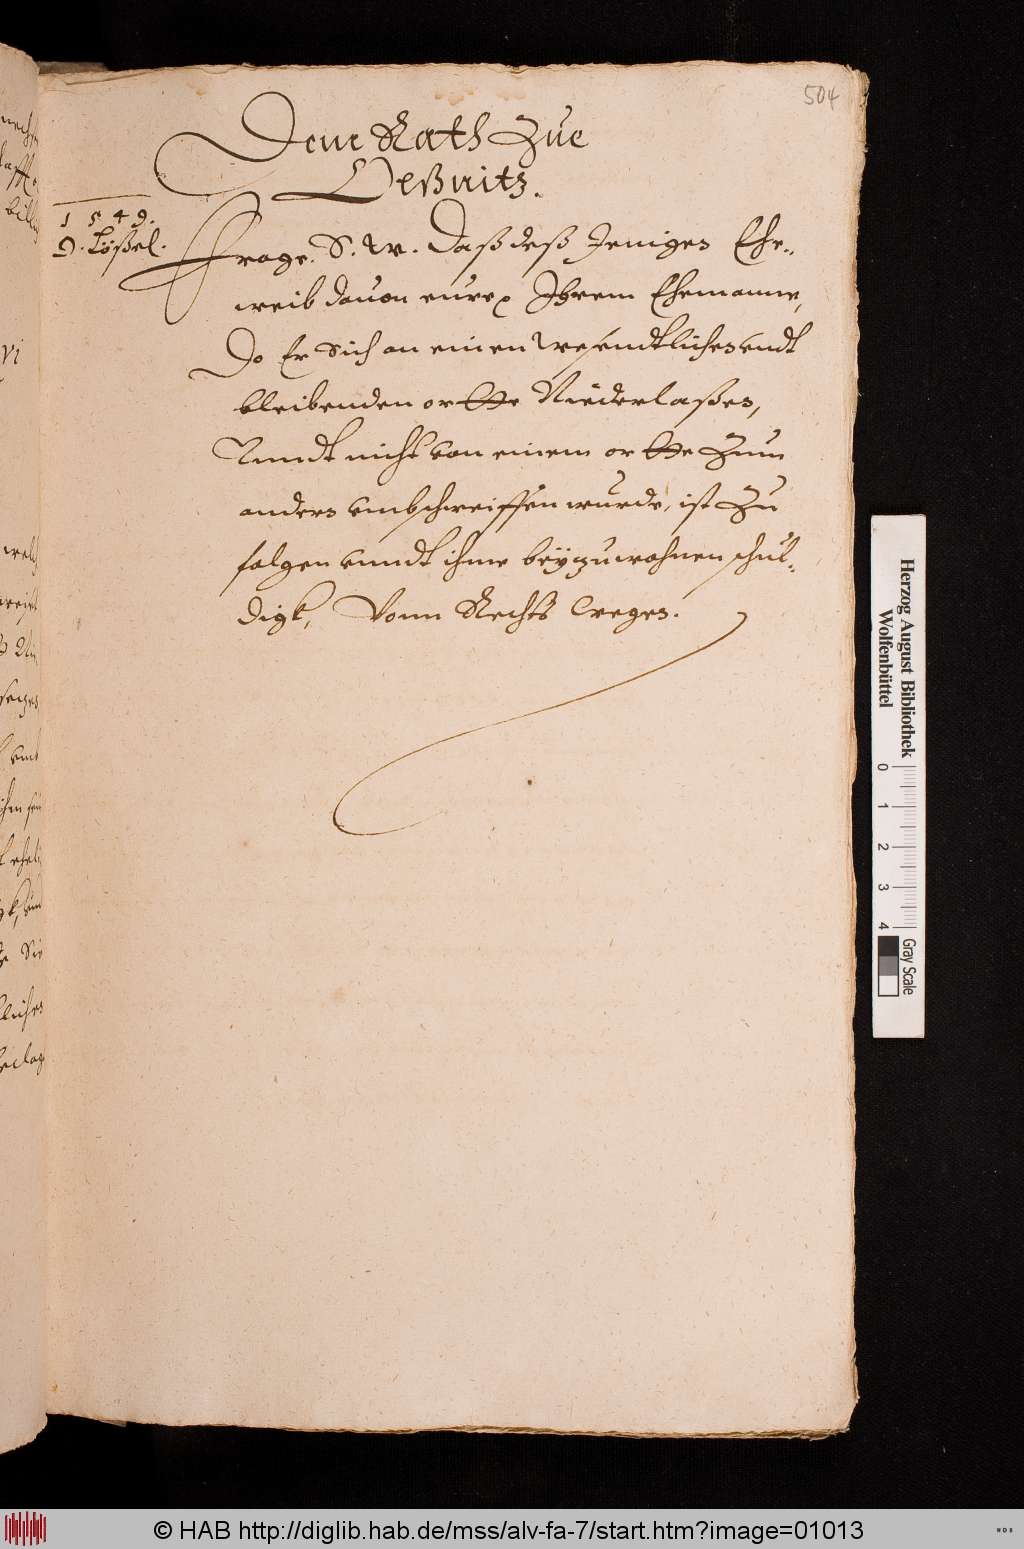 504
Deme Rath Zue
Oelßnitz.
1549.
D. Lößel.
Frage. S. W. Daß deß Jenigen Ehe-
weib dauon eurer Ihrem Ehemanne,
Do Er Sich an einen wesendtlichen vndt
bleibenden ortte Niederlaßen,
Vnndt nicht von einem ortte Zum
andern vmbschweiffen wurde, ist Zu
folgen vnndt ihme beÿzuwohnen schul-
digk, Vonn Rechts wegen.
Herzog August Bibliothek
Wolfenbüttel
0 1 2 3 4
Gray Scale
© HAB http://diglib.hab.de/mss/alv-fa-7/start.htm?image=01013